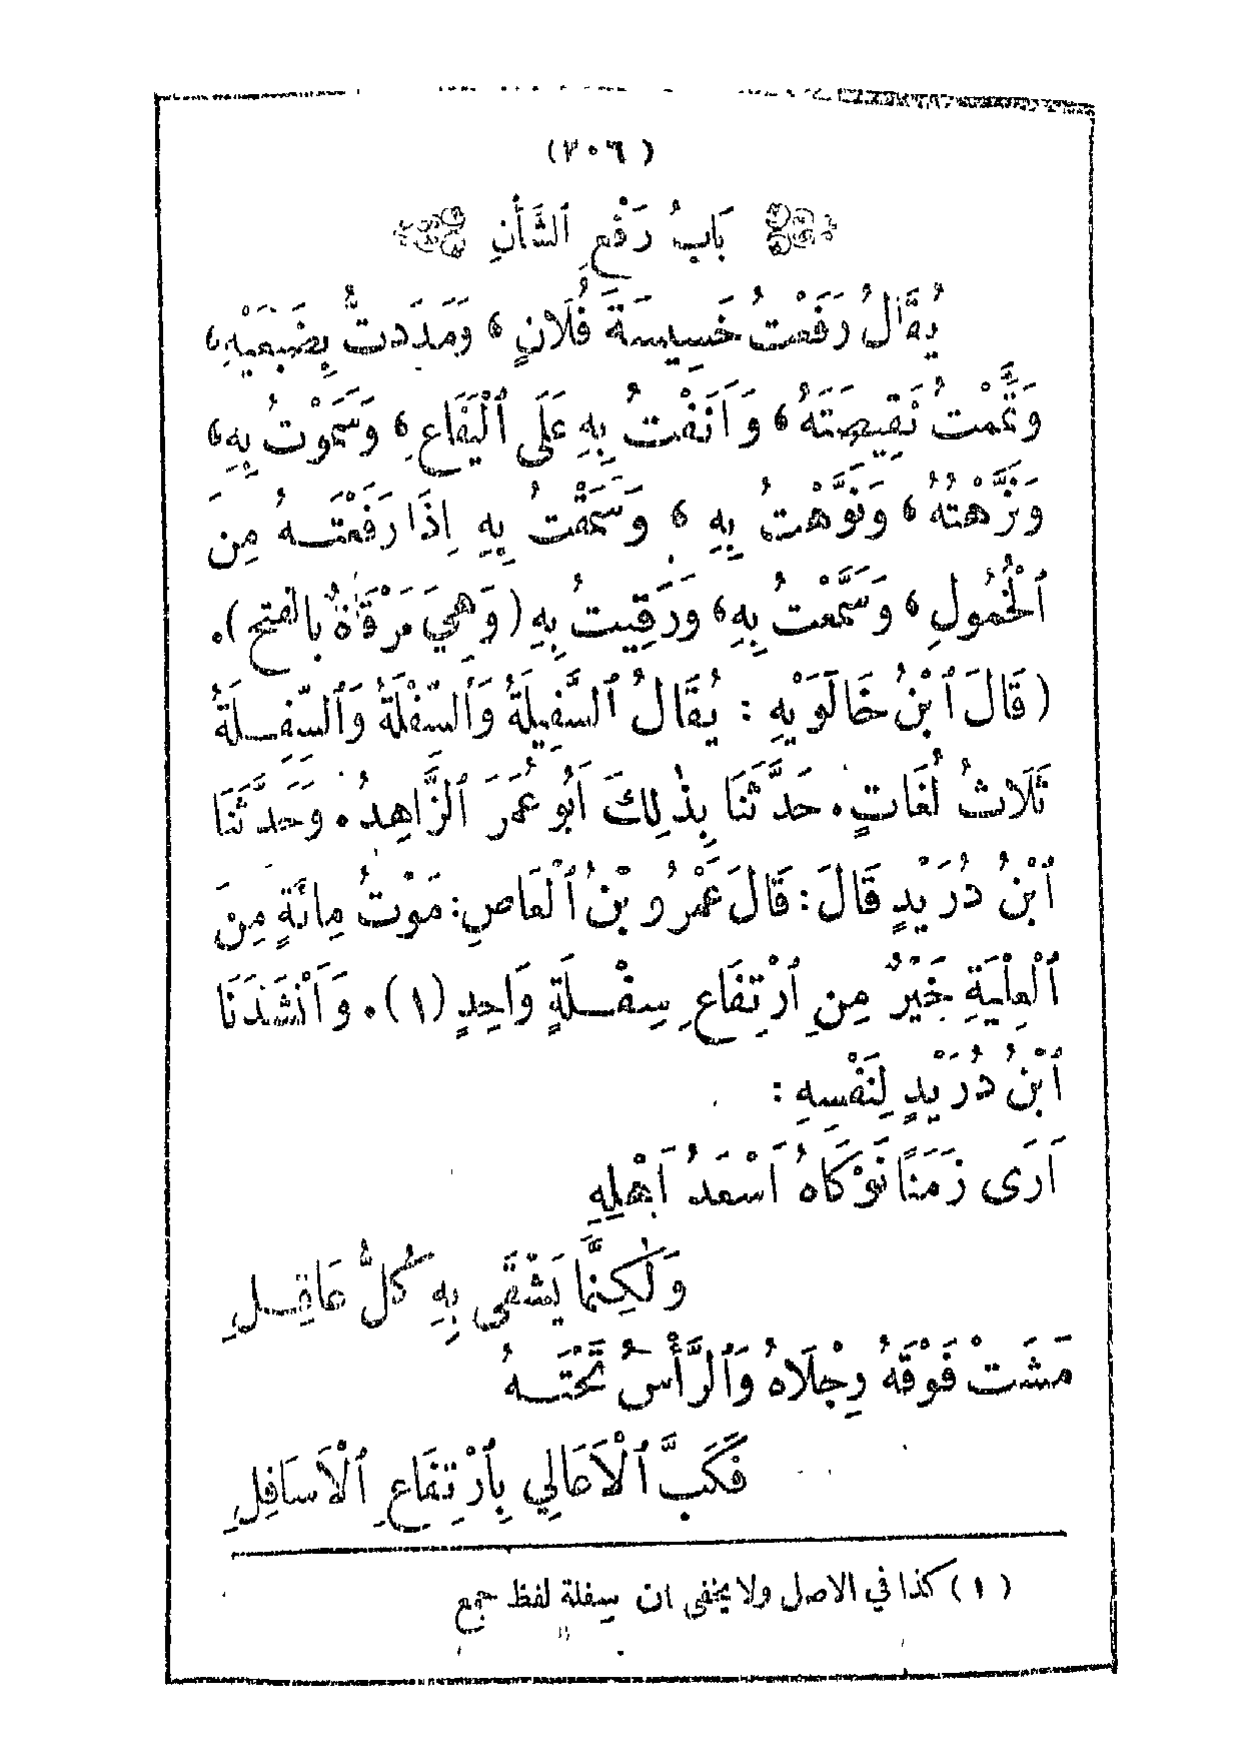 (٢٠٦)
بَابُ رَفْعِ ٱلشَّأْنِ
يُقَالُ رَفَعْتُ خَسِيسَةَ فُلَانٍ، وَمَدَدتُّ بِضَبْعَيْهِ،
وَتَمَّمْتُ نَقِيصَتَهُ، وَأَنَفْتُ بِهِ عَلَى ٱلْيَفَاعِ، وَسَمَوْتُ بِهِ،
وَنَزَّهْتُهُ، وَنَوَّهْتُ بِهِ، وَسَمَقْتُ بِهِ إِذَا رَفَعْتَهُ مِنَ
ٱلْخُمُولِ، وَسَمَّعْتُ بِهِ، وَرَقِيتُ بِهِ (وَهِيَ مَرْقَاةٌ بِالْفَتْحِ).
(قَالَ ٱبْنُ خَالَوَيْهِ : يُقَالُ ٱلسَّفِلَةُ وَٱلسِّفْلَةُ وَٱلسِّفِلَةُ
ثَلَاثُ لُغَاتٍ. حَدَّثَنَا بِذٰلِكَ أَبُو عُمَرَ ٱلزَّاهِدُ. وَحَدَّثَنَا
ٱبْنُ دُرَيْدٍ قَالَ: قَالَ عَمْرُو بْنُ ٱلْعَاصِ: مَوْتُ مِائَةٍ مِنَ
ٱلْعِلْيَةِ خَيْرٌ مِنِ ٱرْتِفَاعِ سِفْلَةٍ وَاحِدٍ (١). وَأَنْشَدَنَا
ٱبْنُ دُرَيْدٍ لِنَفْسِهِ :
أَرَى زَمَنًا نَوْكَاهُ أَسْعَدُ أَهْلِهِ
وَلٰكِنَّمَا يَشْقَى بِهِ كُلُّ عَاقِلِ
مَشَتْ فَوْقَهُ رِجْلَاهُ وَٱلرَّأْسُ تَحْتَهُ
فَكَبَّ ٱلْأَعَالِي بِٱرْتِفَاعِ ٱلْأَسَافِلِ
(١) كذا في الاصل ولا يخفى ان سفلة لفظ جمع